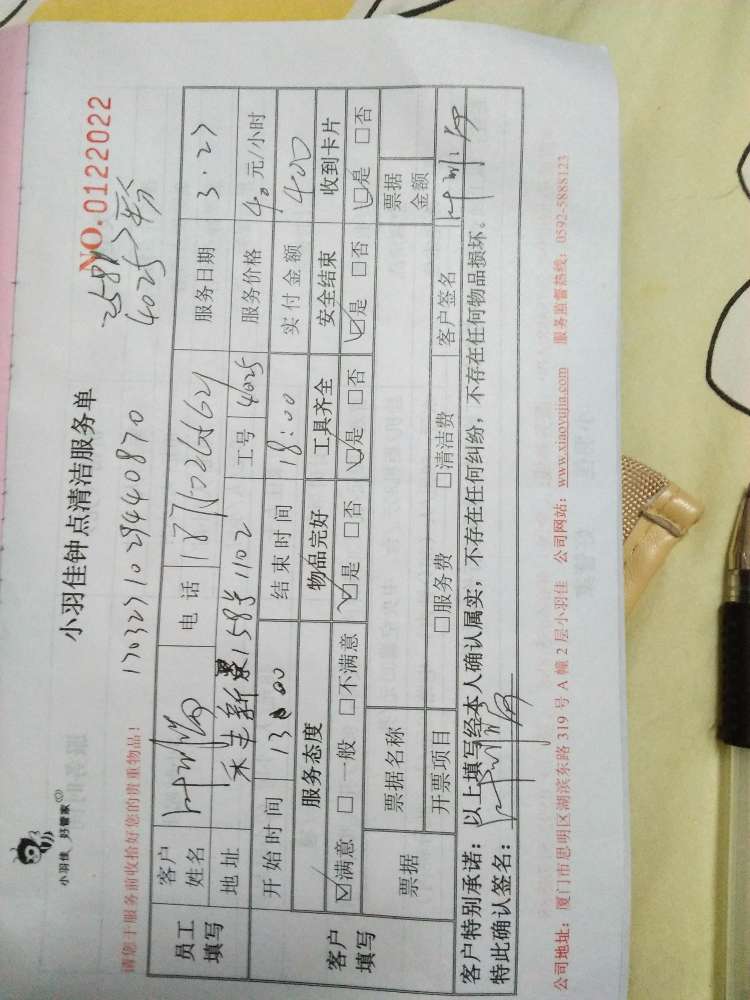 小羽佳 好管家
小羽佳钟点清洁服务单
NO.0122022
请您于服务前收拾好您的贵重物品!
1703271029440870
4025
员工填写
客户姓名
电话
服务日期 3.27
地址 禾丰新景158号1102
工号 4025
服务价格 40元/小时
客户填写
开始时间 13:00
结束时间 18:00
实付金额 400
服务态度 物品完好 工具齐全 安全结束 收到卡片
☑满意 □一般 □不满意 ☑是 □否 ☑是 □否 ☑是 □否 ☑是 □否
票据
票据名称
票据金额
开票项目 □服务费 □清洁费
客户签名
客户特别承诺:以上填写经本人确认属实,不存在任何纠纷,不存在任何物品损坏。
特此确认签名:
公司地址:厦门市思明区湖滨东路 319 号 A 幢 2 层小羽佳 公司网站:www.xiaoyujia.com 服务监督热线:0592-5888123